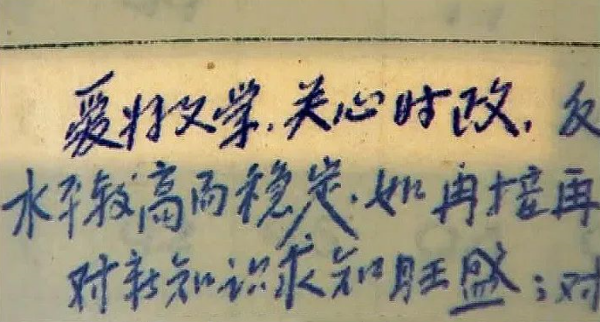 爱好文学.关心时政.反
水平较高而稳定.如再接再
对新知识求知旺盛;对